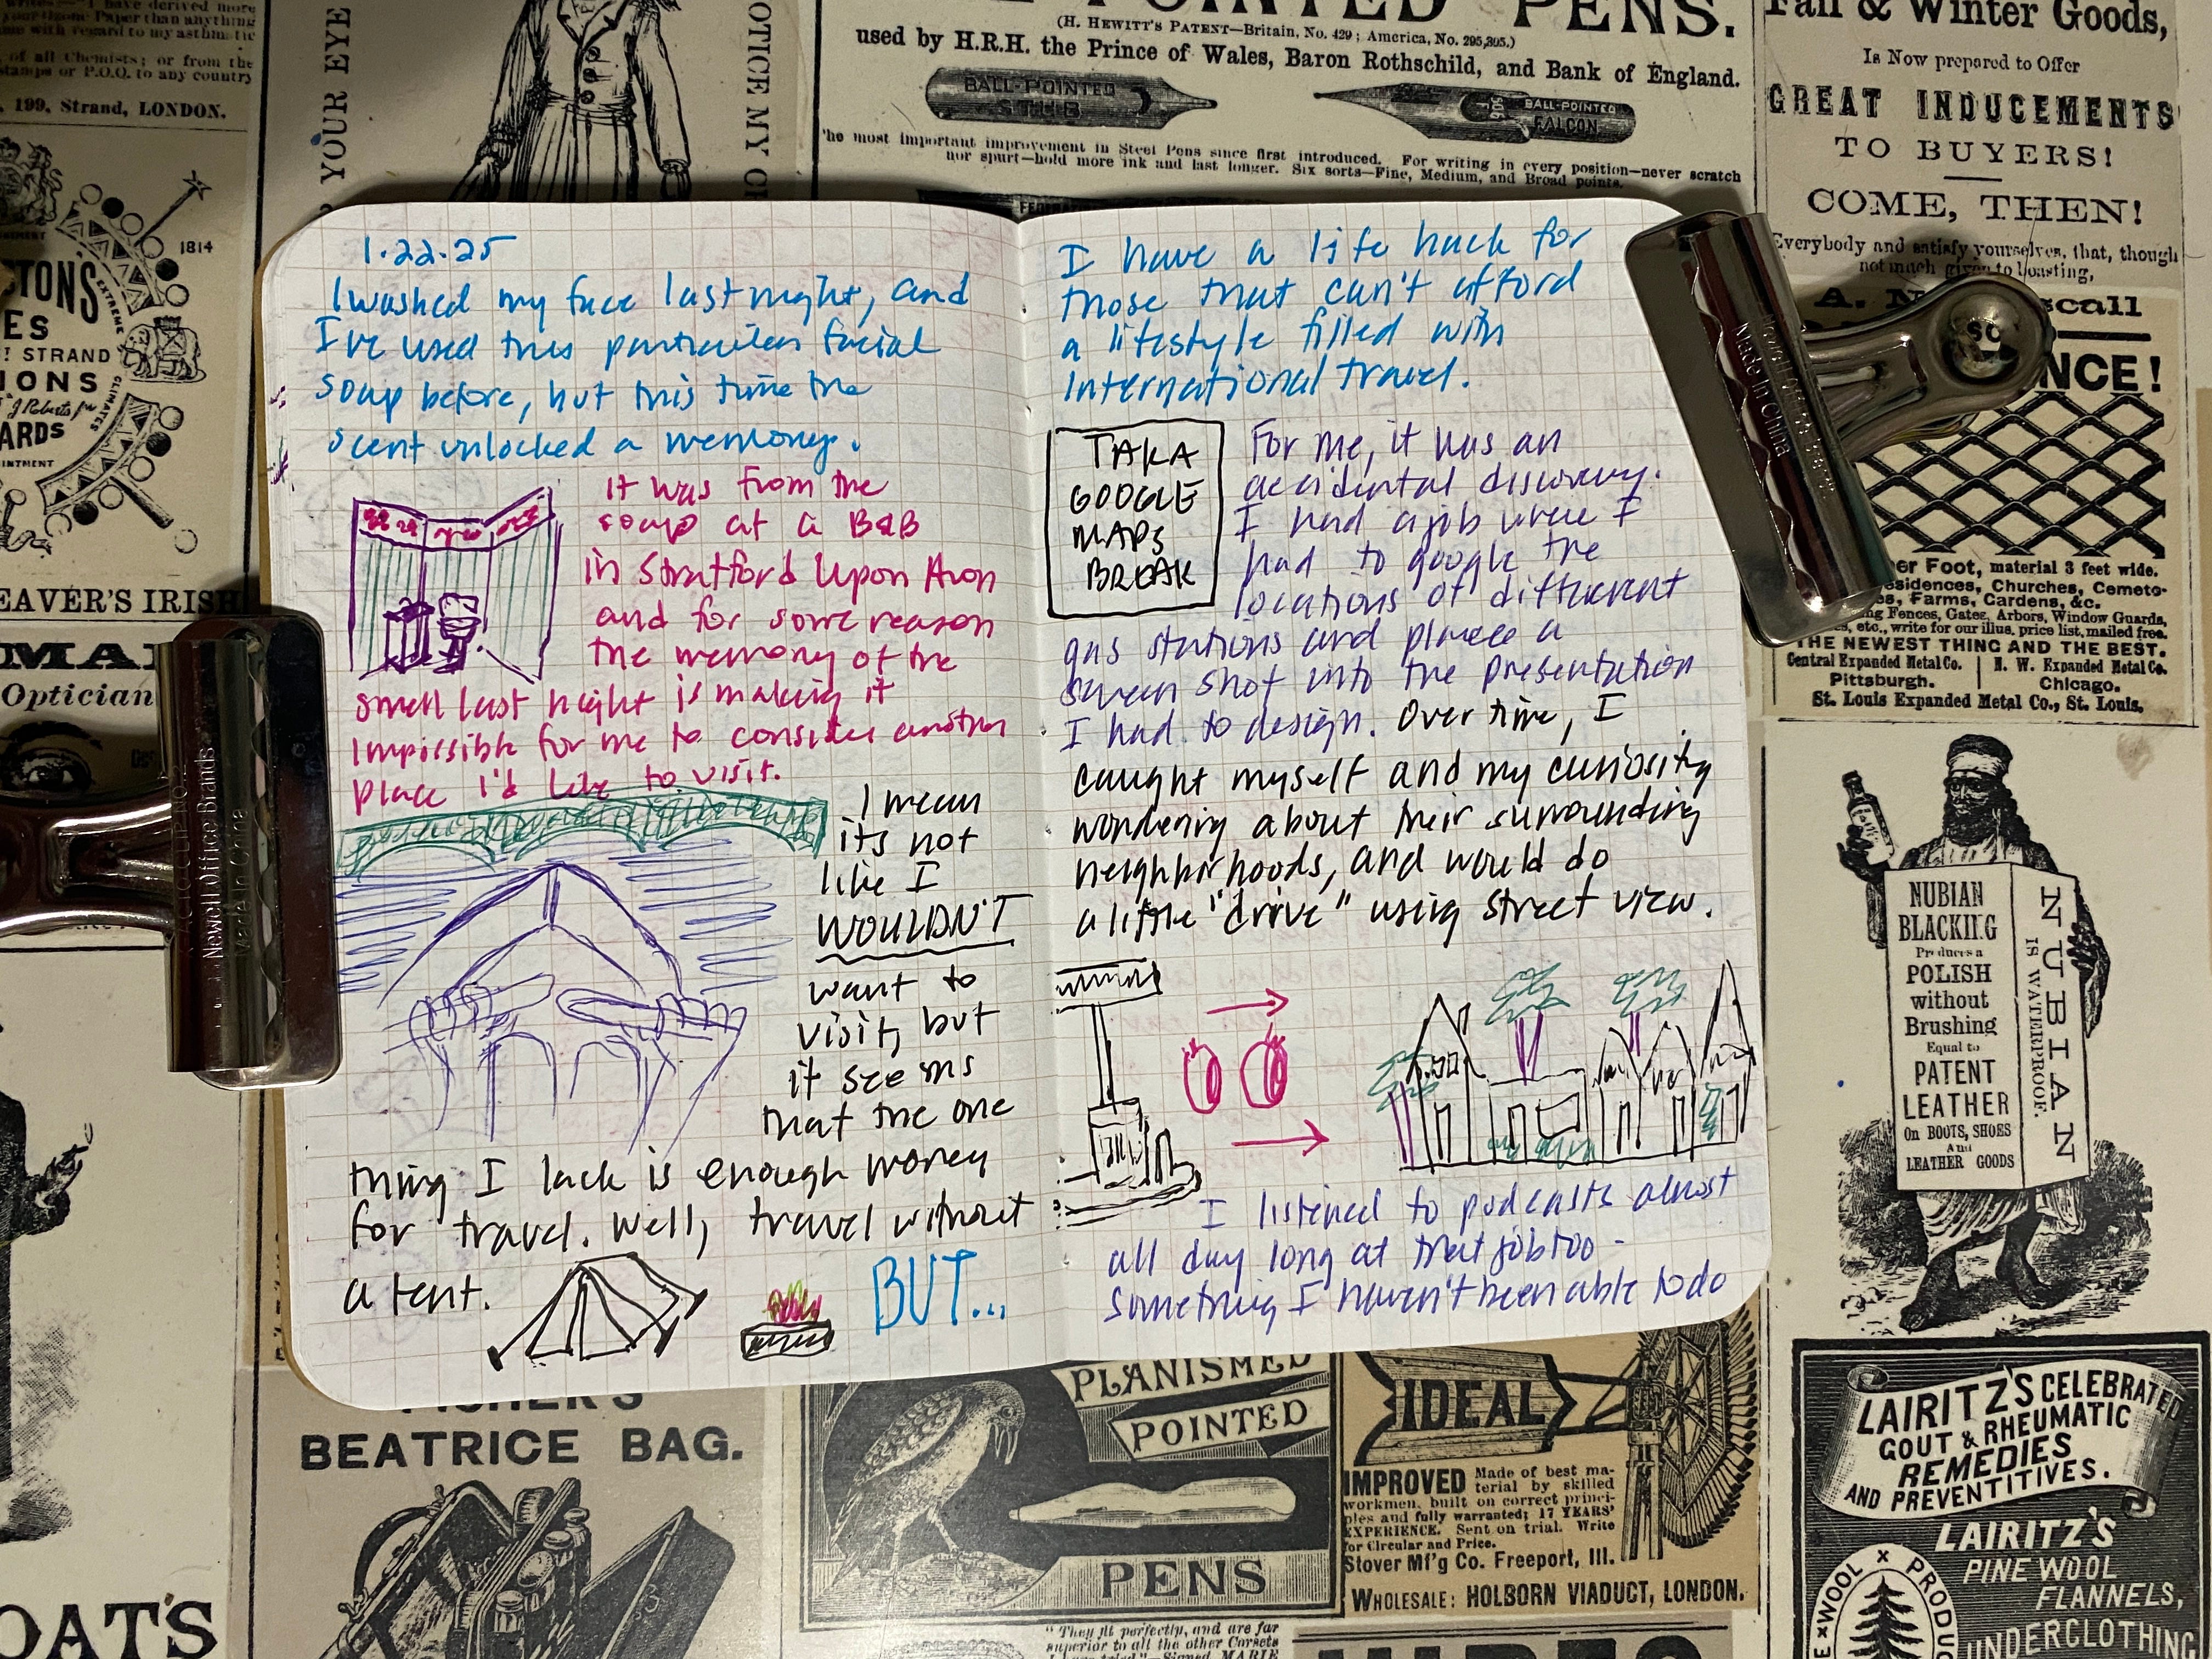 1.22.25
I washed my face last night, and
I've used this particular facial
soap before, but this time the
scent unlocked a memory.
It was from the
soap at a B&B
in Stratford Upon Avon
and for some reason
the memory of the
smell last night is making it
impossible for me to consider another
place I'd like to visit.
I mean
it's not
like I
WOULDN'T
want to
visit, but
it seems
that the one
thing I lack is enough money
for travel. Well, travel without
a tent.
BUT...
I have a life hack for
those that can't afford
a lifestyle filled with
International travel.
TAKA
GOOGLE
MAPS
BREAK
For me, it was an
accidental discovery.
I had a job where I
had to google the
locations of different
gas stations and place a
screen shot into the presentation
I had to design. Over time, I
caught myself and my curiosity
wondering about their surrounding
neighborhoods, and would do
a little "drive" using street view.
I listened to podcasts almost
all day long at that job too -
something I haven't been able to do
Newell Office Brands
Made in China
Made in China
POINTED PENS.
(H. HEWITT'S PATENT—Britain, No. 429; America, No. 295,395.)
used by H.R.H. the Prince of Wales, Baron Rothschild, and Bank of England.
BALL-POINTED
BALL-POINTED
FALCON
he most important improvement in Steel Pens since first introduced. For writing in every position—never scratch
nor spurt—hold more ink and last longer. Six sorts—Fine, Medium, and Broad points.
Fall & Winter Goods,
Is Now prepared to Offer
GREAT INDUCEMENTS
TO BUYERS!
COME, THEN!
Everybody and satisfy yourselves, that, though
not much given to boasting,
call
NCE!
er Foot, material 3 feet wide.
sidences, Churches, Cemeto-
es, Farms, Gardens, &c.
ng Fences, Gates, Arbors, Window Guards,
etc., write for our illus. price list, mailed free.
THE NEWEST THING AND THE BEST.
Central Expanded Metal Co.
Pittsburgh.
N. W. Expanded Metal Co.
Chicago.
St. Louis Expanded Metal Co., St. Louis.
NUBIAN
BLACKING
Produces a
POLISH
without
Brushing
Equal to
PATENT
LEATHER
On BOOTS, SHOES
And
LEATHER GOODS
NUBIAN
IS WATERPROOF.
LAIRITZ'S CELEBRATED
GOUT & RHEUMATIC
REMEDIES
AND PREVENTITIVES.
LAIRITZ'S
PINE WOOL
FLANNELS,
UNDERCLOTHING
WOOL
PRODU
I have derived more
Ozone Paper than anything
me with regard to my asthmatic
of all Chemists; or from the
stamps or P.O.O. to any country
199, Strand, LONDON.
YOUR EYE
OTICE MY CH
1814
STRAND
EXTREME
CLIMATES
EAVER'S IRISH
Optician
OAT'S
BEATRICE BAG.
PLANISHED
POINTED
PENS
IDEAL
IMPROVED Made of best ma-
terial by skilled
workmen, built on correct princi-
ples and fully warranted; 17 YEARS'
EXPERIENCE. Sent on trial. Write
for Circular and Price.
Stover Mf'g Co. Freeport, Ill.
WHOLESALE: HOLBORN VIADUCT, LONDON.
"They fit perfectly, and are far
superior to all the other Corsets